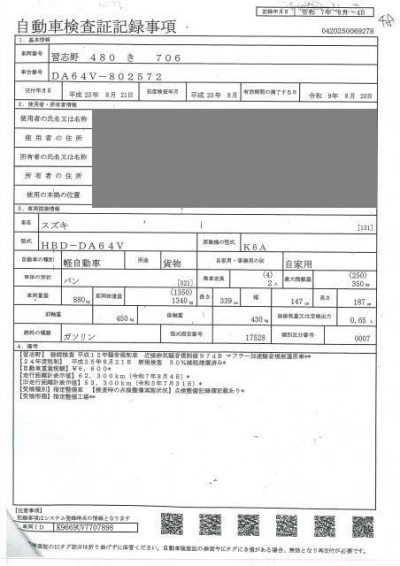 自動車検査証記録事項
記録年月日 令和 7年 8月 4日
0420250069278
1. 基本情報
車両番号 習志野 480 き 706
車台番号 DA64V-802572
交付年月日 平成 25年 8月 21日 初度検査年月 平成 25年 8月 有効期間の満了する日 令和 9年 8月 20日
2. 使用者・所有者情報
使用者の氏名又は名称
使用者の住所
所有者の氏名又は名称
所有者の住所
使用の本拠の位置
3. 車両詳細情報
車名 スズキ [131]
型式 HBD-DA64V 原動機の型式 K6A
自動車の種別 軽自動車 用途 貨物 自家用・事業用の別 自家用
車体の形状 バン [021] 乗車定員 (4) 2人 最大積載量 (250) 350kg
車両重量 880kg 車両総重量 (1350) 1340kg 長さ 339cm 幅 147cm 高さ 187cm
前軸重 450kg 後軸重 430kg 総排気量又は定格出力 0.65L
燃料の種類 ガソリン 型式指定番号 17528 類別区分番号 0007
4. 備考
【習志野】 継続検査 平成12年騒音規制車 近接排気騒音規制値97dB マフラー加速騒音規制適用車**
【24年度税制】 平成25年8月21日 新規検査 50%減税措置済み*
【自動車重量税額】¥6,600*
【走行距離計表示値】62,300km(令和7年8月4日)*
【旧走行距離計表示値】53,300km(令和5年7月31日)*
【受検種別】指定整備車 【検査時の点検整備実施状況】点検整備記録簿記載あり*
【受検形態】指定整備工場**
【注意事項】
記録事項はシステム登録時点の情報となります。
車両ID K9669UV7707898